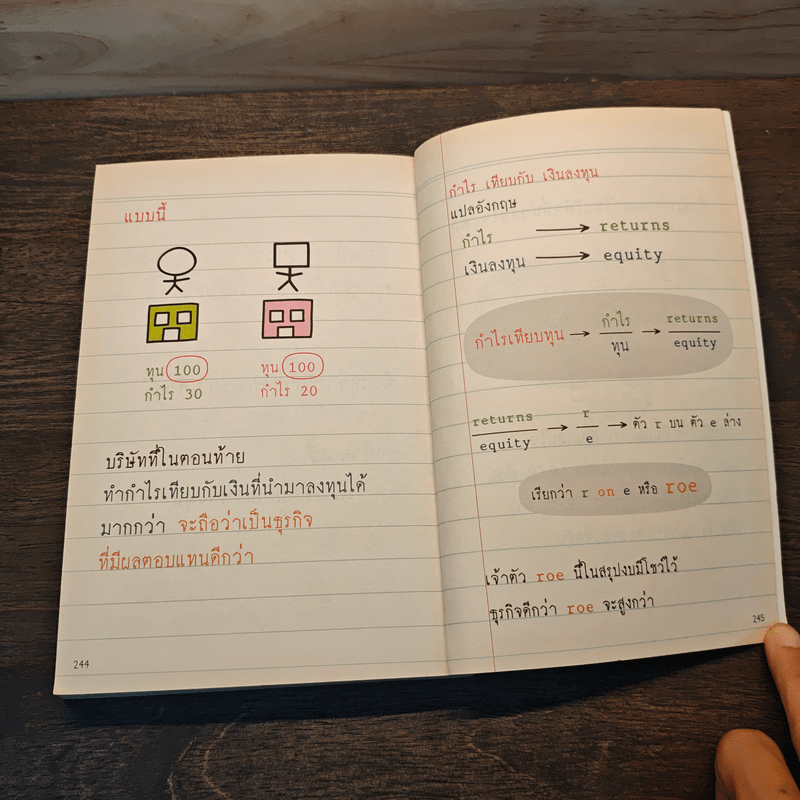 แบบนี้
ทุน 100
กำไร 30
ทุน 100
กำไร 20
บริษัทที่ในตอนท้าย
ทำกำไรเทียบกับเงินที่นำมาลงทุนได้
มากกว่า จะถือว่าเป็นธุรกิจ
ที่มีผลตอบแทนดีกว่า
244
กำไร เทียบกับ เงินลงทุน
แปลอังกฤษ
กำไร → returns
เงินลงทุน → equity
กำไรเทียบทุน → กำไร/ทุน → returns/equity
returns/equity → r/e → ตัว r บน ตัว e ล่าง
เรียกว่า r on e หรือ roe
เจ้าตัว roe นี้ในสรุปงบมีโชว์ไว้
ธุรกิจดีกว่า roe จะสูงกว่า
245